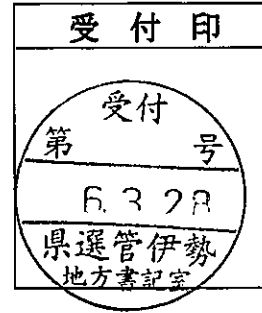 受付印
受付
第 号
6.3.28
県選管伊勢
地方書記室